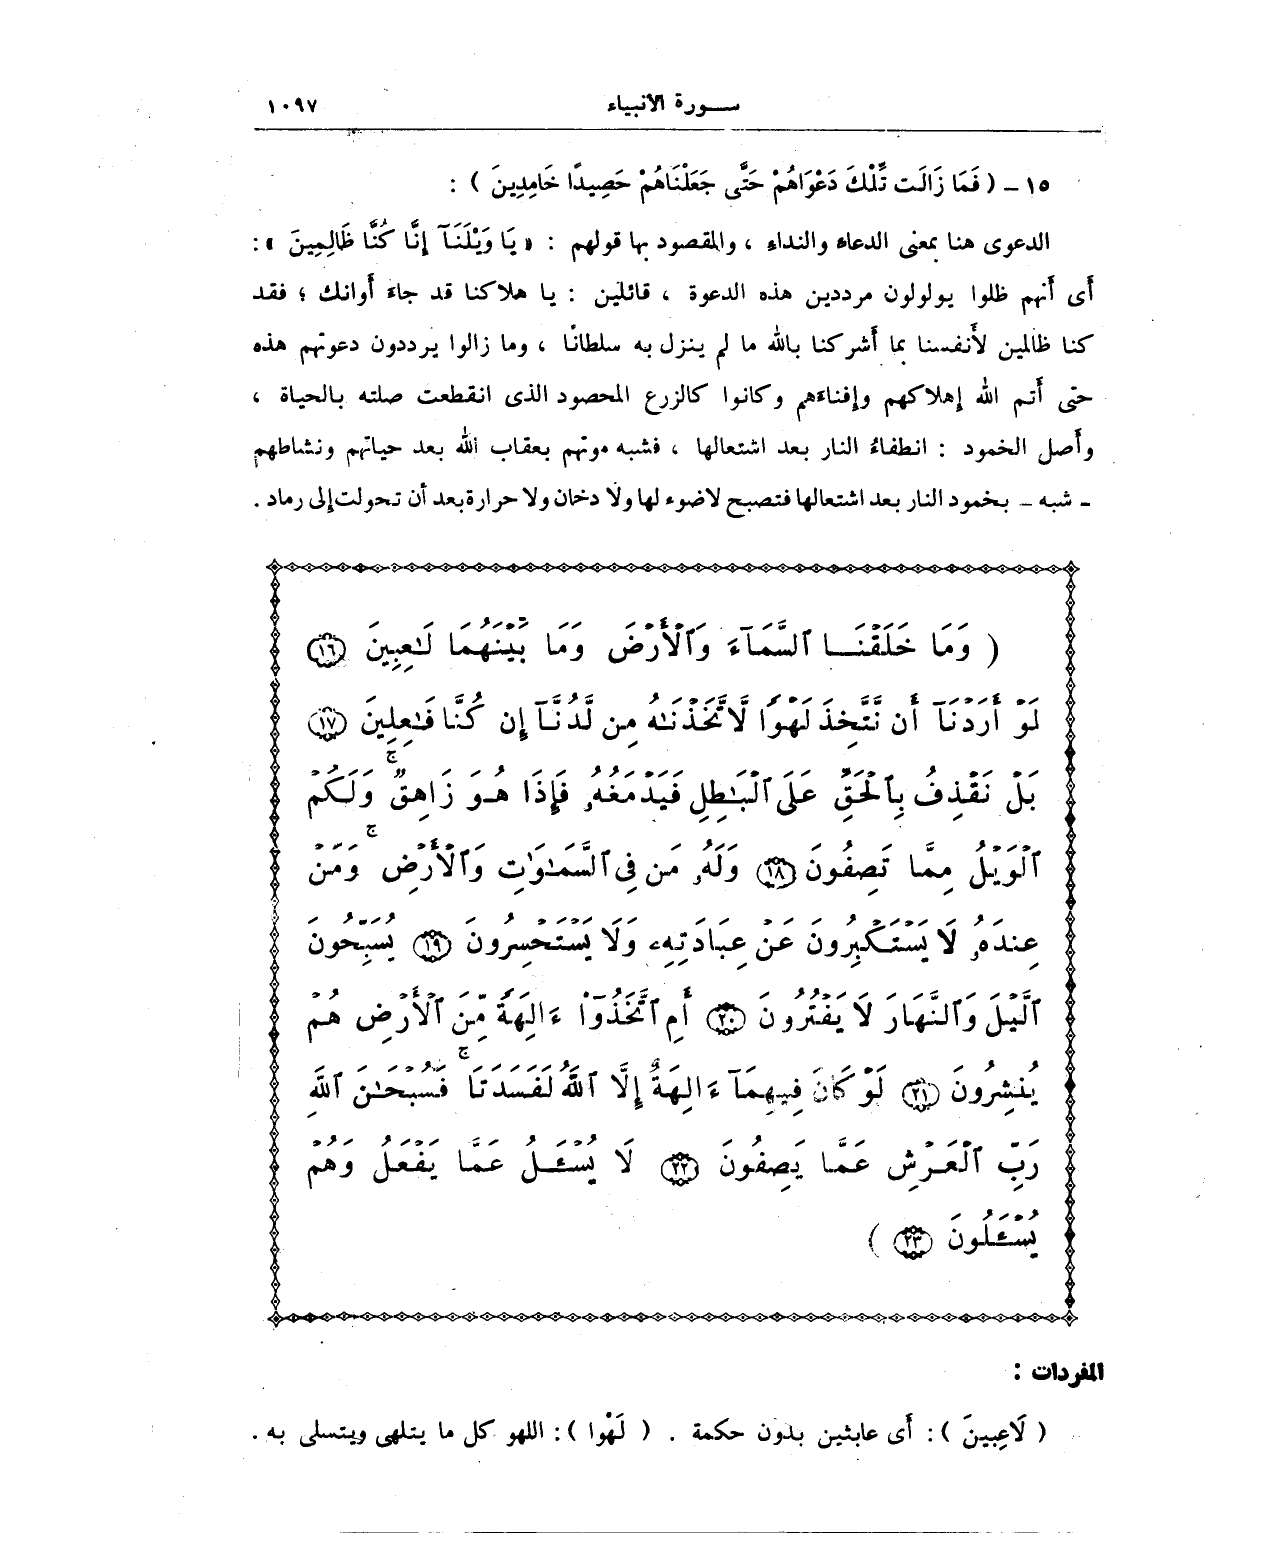 سورة الأنبياء ١٠٩٧
١٥ - ( فَمَا زَالَت تِّلْكَ دَعْوَاهُمْ حَتَّى جَعَلْنَاهُمْ حَصِيدًا خَامِدِينَ ) :
الدعوى هنا بمعنى الدعاء والنداء ، والمقصود بها قولهم : « يَا وَيْلَنَآ إِنَّا كُنَّا ظَالِمِينَ » :
أى أنهم ظلوا يولولون مرددين هذه الدعوة ، قائلين : يا هلاكنا قد جاء أوانك ؛ فقد
كنا ظالمين لأنفسنا بما أشركنا بالله ما لم ينزل به سلطانًا ، وما زالوا يرددون دعوتهم هذه
حتى أتم الله إهلاكهم وإفناءهم وكانوا كالزرع المحصود الذى انقطعت صلته بالحياة ،
وأصل الخمود : انطفاءُ النار بعد اشتعالها ، فشبه موتهم بعقاب الله بعد حياتهم ونشاطهم
- شبه - بخمود النار بعد اشتعالها فتصبح لاضوء لها ولا دخان ولا حرارة بعد أن تحولت إلى رماد .
( وَمَا خَلَقْنَا ٱلسَّمَآءَ وَٱلْأَرْضَ وَمَا بَيْنَهُمَا لَٰعِبِينَ ١٦
لَوْ أَرَدْنَآ أَن نَّتَّخِذَ لَهْوًا لَّاتَّخَذْنَٰهُ مِن لَّدُنَّآ إِن كُنَّا فَٰعِلِينَ ١٧
بَلْ نَقْذِفُ بِٱلْحَقِّ عَلَى ٱلْبَٰطِلِ فَيَدْمَغُهُۥ فَإِذَا هُوَ زَاهِقٌ ۚ وَلَكُمُ
ٱلْوَيْلُ مِمَّا تَصِفُونَ ١٨ وَلَهُۥ مَن فِى ٱلسَّمَٰوَٰتِ وَٱلْأَرْضِ ۚ وَمَنْ
عِندَهُۥ لَا يَسْتَكْبِرُونَ عَنْ عِبَادَتِهِۦ وَلَا يَسْتَحْسِرُونَ ١٩ يُسَبِّحُونَ
ٱلَّيْلَ وَٱلنَّهَارَ لَا يَفْتُرُونَ ٢٠ أَمِ ٱتَّخَذُوٓا۟ ءَالِهَةً مِّنَ ٱلْأَرْضِ هُمْ
يُنشِرُونَ ٢١ لَوْ كَانَ فِيهِمَآ ءَالِهَةٌ إِلَّا ٱللَّهُ لَفَسَدَتَا ۚ فَسُبْحَٰنَ ٱللَّهِ
رَبِّ ٱلْعَرْشِ عَمَّا يَصِفُونَ ٢٢ لَا يُسْـَٔلُ عَمَّا يَفْعَلُ وَهُمْ
يُسْـَٔلُونَ ٢٣ )
المفردات :
( لَاعِبِينَ ) : أى عابثين بدون حكمة . ( لَهْوًا ) : اللهو كل ما يتلهى ويتسلى به .